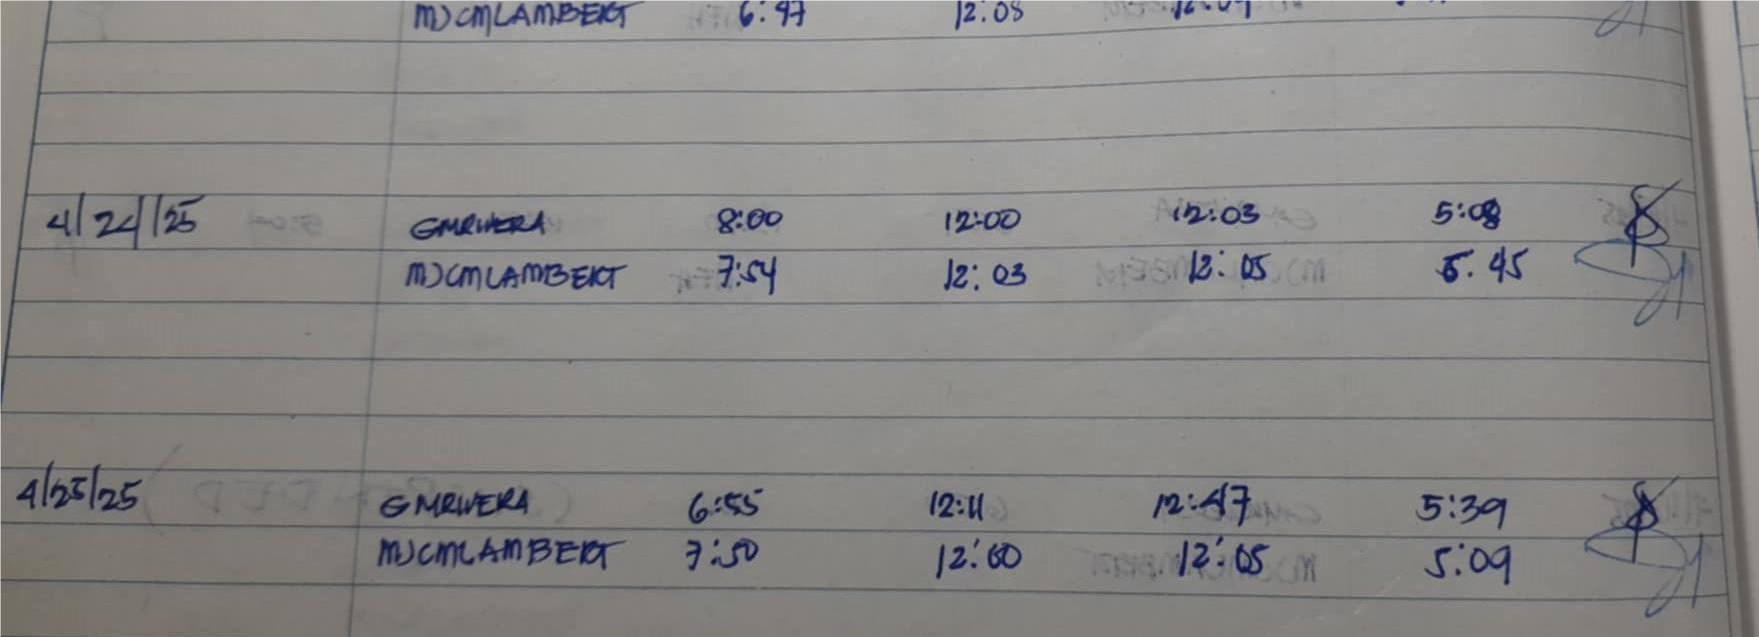 MJCMLAMBERT 6:47 12:08 12:09
4/24/25 GMRIVERA 8:00 12:00 12:03 5:08
MJCMLAMBERT 7:54 12:03 12:05 5.45
4/25/25 GMRIVERA 6:55 12:11 12:47 5:39
MJCMLAMBERT 7:50 12:00 12:05 5:09